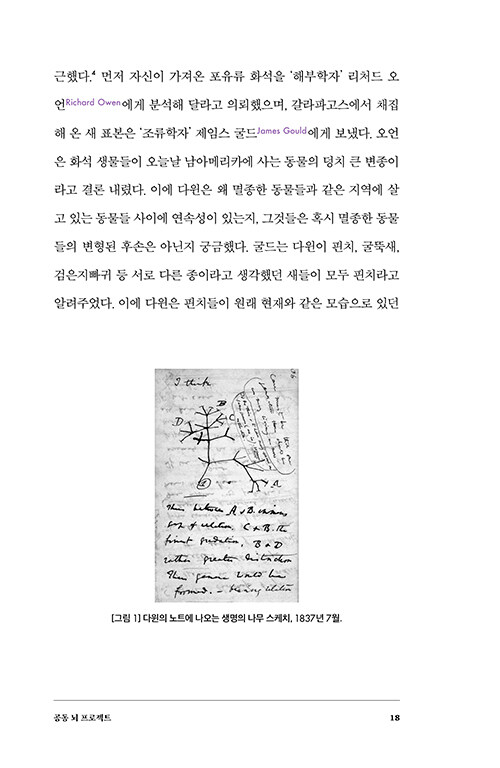 근했다.4 먼저 자신이 가져온 포유류 화석을 ‘해부학자’ 리처드 오
언Richard Owen에게 분석해 달라고 의뢰했으며, 갈라파고스에서 채집
해 온 새 표본은 ‘조류학자’ 제임스 굴드James Gould에게 보냈다. 오언
은 화석 생물들이 오늘날 남아메리카에 사는 동물의 덩치 큰 변종이
라고 결론 내렸다. 이에 다윈은 왜 멸종한 동물들과 같은 지역에 살
고 있는 동물들 사이에 연속성이 있는지, 그것들은 혹시 멸종한 동물
들의 변형된 후손은 아닌지 궁금했다. 굴드는 다윈이 핀치, 굴뚝새,
검은지빠귀 등 서로 다른 종이라고 생각했던 새들이 모두 핀치라고
알려주었다. 이에 다윈은 핀치들이 원래 현재와 같은 모습으로 있던
I think
B
D
C
A
1
Thus between A & B immense
gap of relation. C & B. the
finest gradation, B & D
rather greater distinction
Thus genera would be
formed. –
relation
[그림 1] 다윈의 노트에 나오는 생명의 나무 스케치, 1837년 7월.
공동 뇌 프로젝트
18